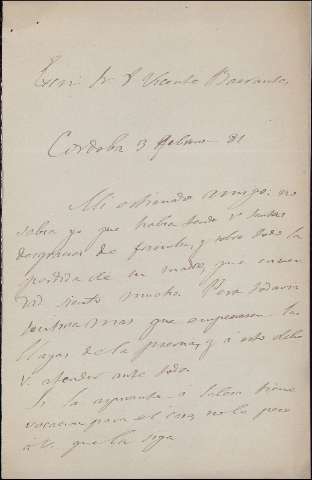 Excmo Sr D Vicente Barrantes
Cordoba 3 Febrero 81
Mi estimado amigo: no
sabia yo que habia tenido V tantas
desgracias de familia, y sobre todo la
perdida de su madre, que creame
Vd siento mucho. Pero todavia
sentiria mas que empeorasen las
llagas de la pierna, y á esto debe
V. atender ante todo.
Si la aspirante á Salesa tiene
vocacion para el no le pese
á V. que la siga